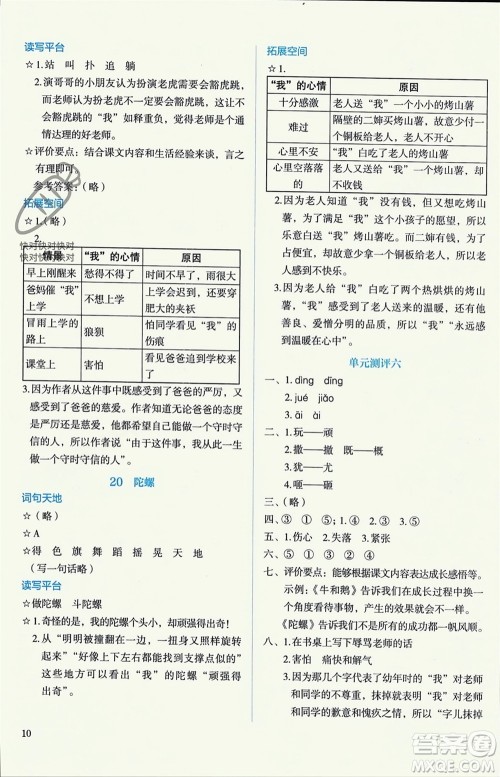 读写平台
☆1.站 叫 扑 追 躺
2.演哥哥的小朋友认为扮演老虎需要会豁虎跳，
而老师认为扮老虎不一定需要会豁虎跳，
“我”如释重负，觉得老师是一个通
情达理的好老师。
☆评价要点：结合课文内容和生活经验来谈，言之
有理即可
参考答案：（略）
拓展空间
☆1.（略）
2.
情景 “我”的心情 原因
早上刚醒来 愁得不得了 时间不早了，雨很大
爸妈催“我”上学 不想上学 时间来不及了，还要穿肥大的夹袄
冒雨上学的路上 狼狈 怕同学看见“我”的怪样子
课堂上 害怕 看见爸爸追到学校来了
3.因为作者从这件事中既感受到了爸爸的严厉，又
感受到了爸爸的慈爱。作者知道，无论爸爸的态度
是严厉还是慈爱，他都希望自己能成为一个守时
守信的人，所以作者说“由于这件事，我从此一生
做一个守时守信的人”。
20 陀螺
词句天地
☆（略）
☆A
☆得 色 旗 舞 蹈 摇 晃 天 地
（写一句话略）
读写平台
☆做陀螺 斗陀螺
☆1.奇怪的是，我的陀螺个头小，却顽强得出奇！
2.从“明明被撞翻在一侧，可一扭身又照样旋转
起来”“好像上下左右都能找到支撑点似的”
这些地方，我体会到了“我”的陀螺“顽强得
出奇”。
10
拓展空间
☆1.
“我”的心情 原因
十分感激 老人送“我”一个小小的烤山薯
难过 隔壁的二婶买烤山薯，故意少给一个铜板给卖烤山薯的老人
心里空落落的 “我”白吃了老人的烤山薯，却不付钱
2.因为老人知道“我”没有钱，但又想吃烤山
薯，为了满足“我”这个小孩子的愿望，所以
乐意白送给“我”烤山薯吃。而二婶有钱，却
故意少付一个铜板，这是对老人劳动的不尊
重，所以老人生气了。
3.因为老人给“我”两个热烘烘的烤山薯，
“我”感受到了老人送来的温暖，被老人的
善良、爱憎分明的品格影响，“我”永远感
到温暖在心中”。
单元测评六
一、1.dìng dīng
2.jué jiāo
3.ái ài
二、1.玩——顽
2.扰——犹
3.尤——龙
三、（略）
四、③ ① ② ④
五、1.伤心 2.失落 3.紧张
六、⑤ ② ④ ③ ①
七、评价要点：能够根据课文内容表达成长感悟等。
参考示例：《牛和鹅》告诉我在成长过程中，要
懂得勇敢面对；《一只窝囊的大老虎》告诉我成
长过程中要善于发现自己，正确认识自己；
《陀螺》告诉我不是所有的成功都一帆风顺。
八、1.在书桌上写下辱骂老师的话
2.害怕 痛快和解气
3.因为那几个字代表了幼年时的“我”对老师
和同学的不尊重，抹掉就意味着“我”对老师
和同学的歉意和愧疚之情，所以“字儿抹掉